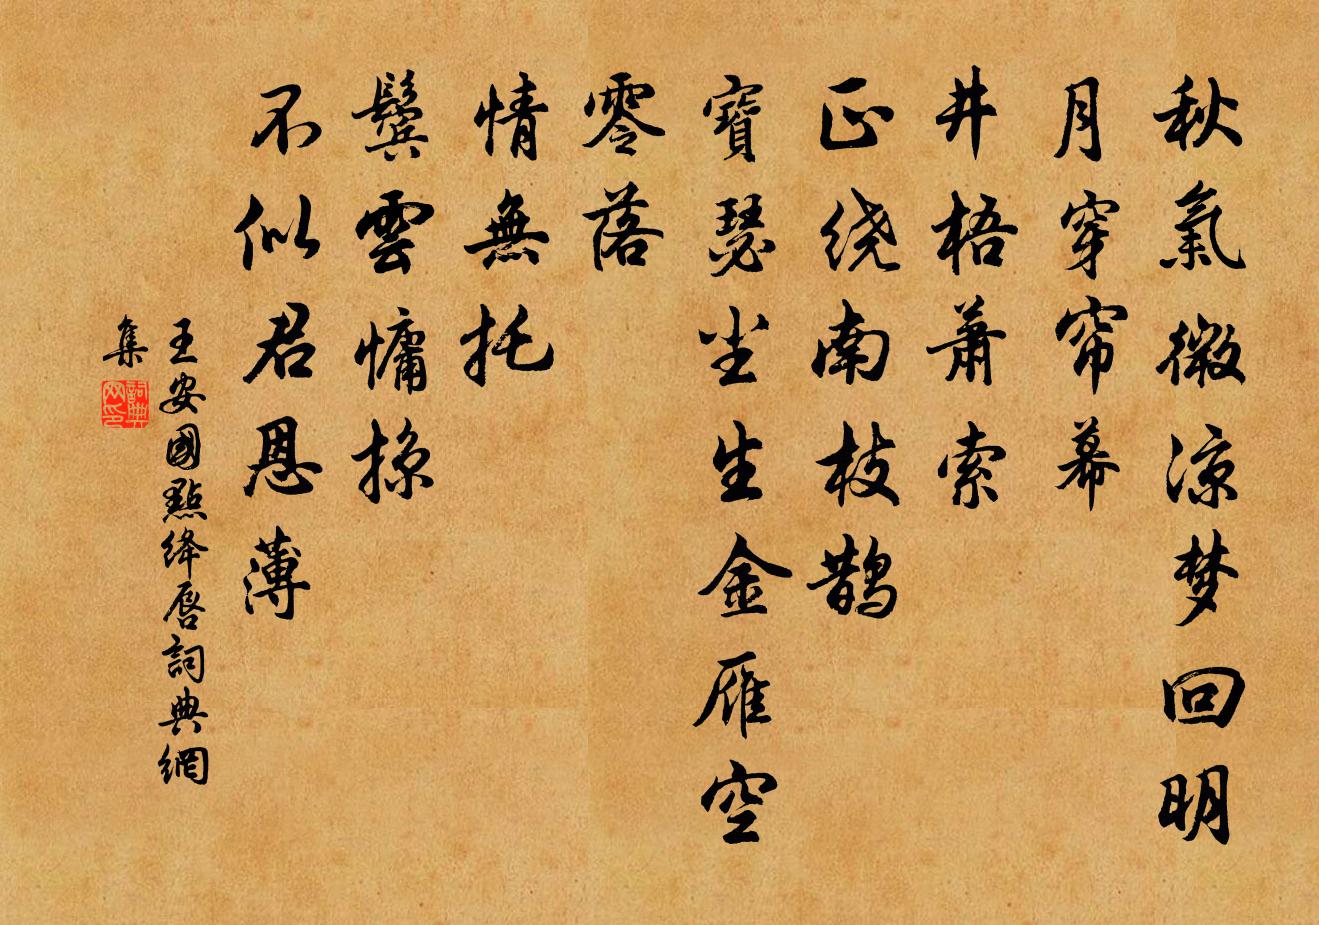 秋氣微涼梦回明
月穿帘幕
井梧萧索
正绕南枝鹊
寶瑟尘生金雁空
零落
情無托
鬓雲慵掠
不似君恩薄
王安國點绛唇詞典網
集
詞典网印